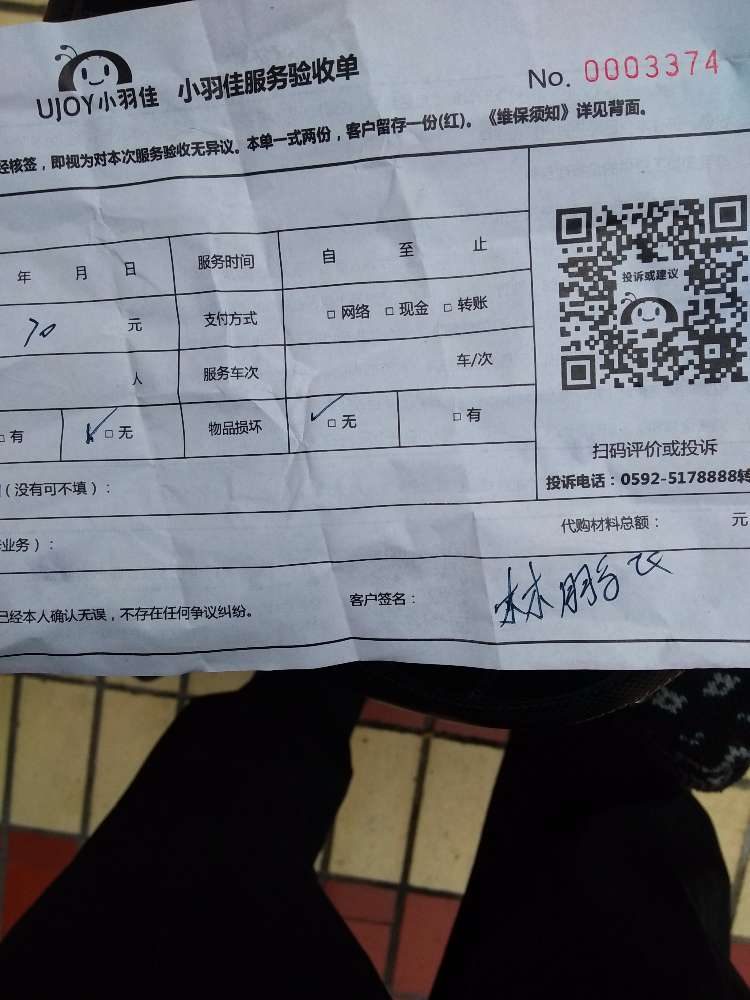 UJOY小羽佳 小羽佳服务验收单 No. 0003374
经核签，即视为对本次服务验收无异议。本单一式两份，客户留存一份(红)。《维保须知》详见背面。
年 月 日 服务时间 自 至 止
70 元 支付方式 □ 网络 □ 现金 □ 转账
人 服务车次 车/次
□ 有 □ 无 物品损坏 □ 无 □ 有
投诉或建议
扫码评价或投诉
投诉电话：0592-5178888转
（没有可不填）：
代购材料总额： 元
业务）：
已经本人确认无误，不存在任何争议纠纷。 客户签名： 林鹏飞